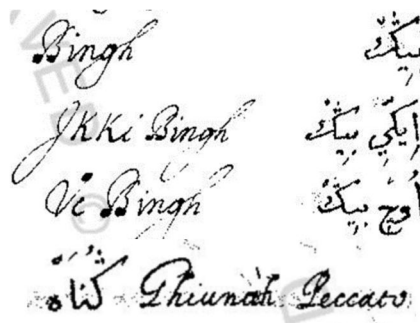 Bingh بيڭ
Jkki Bingh ايكّي بيڭ
Vc Bingh اوچ بيڭ
كناه Ghiunah. Peccato